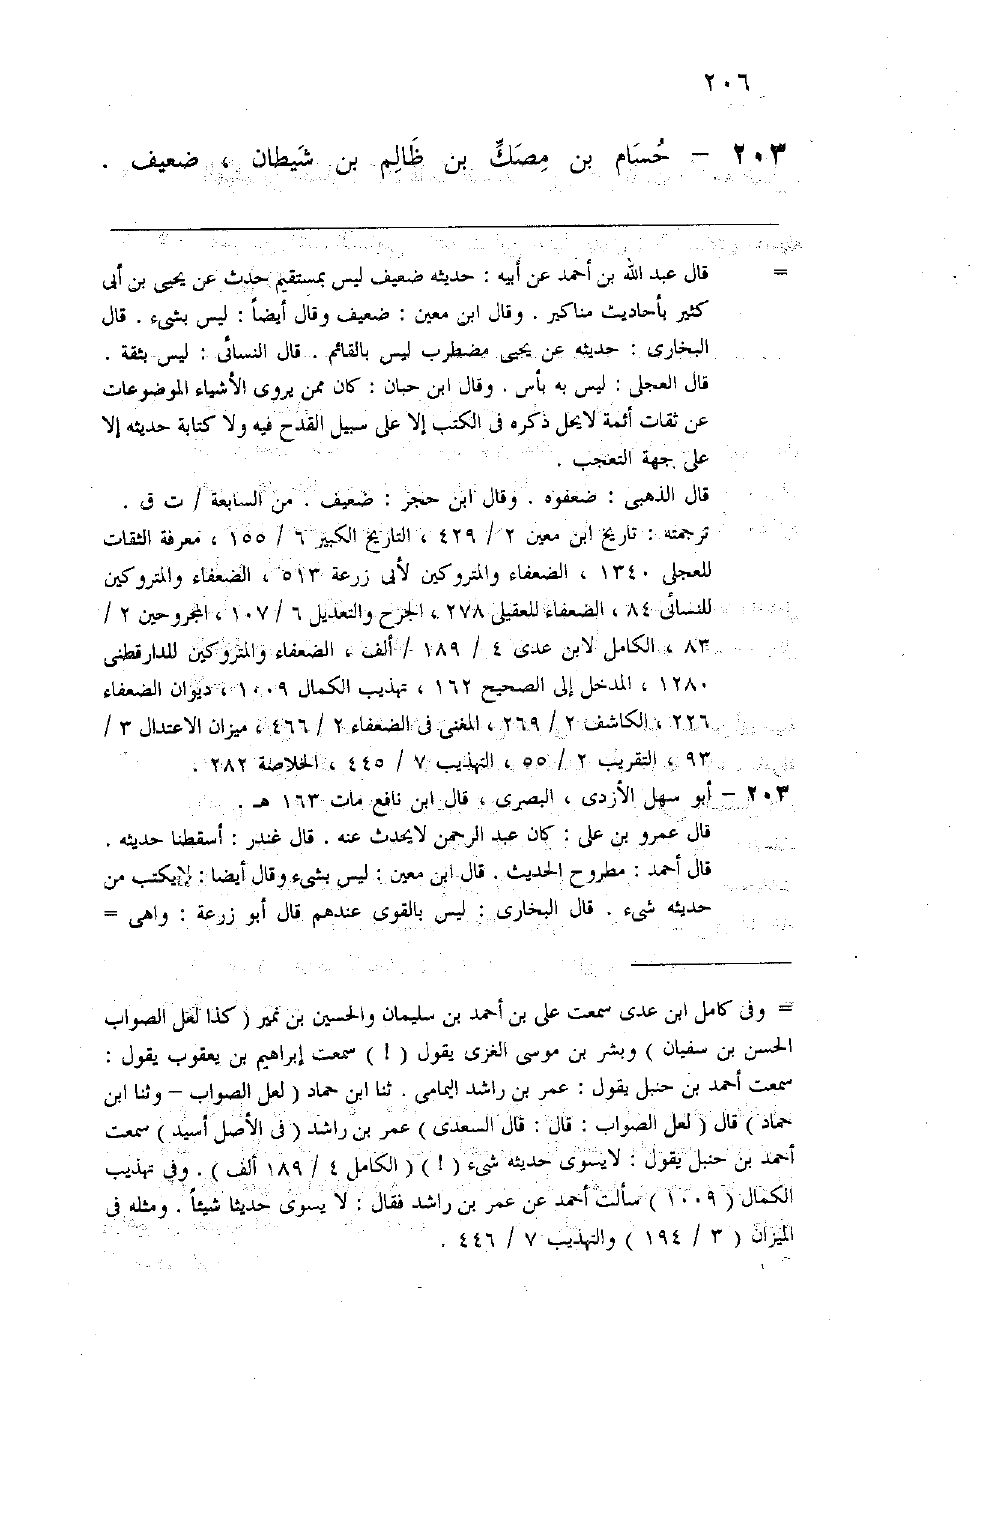 ٢٠٦
٢٠٣ – حُسَام بن مِصَكٍّ بن ظَالِم بن شَيطان ، ضعيف .
= قال عبد الله بن أحمد عن أبيه : حديثه ضعيف ليس بمستقيم حدث عن يحيى بن أبى
كثير بأحاديث مناكير . وقال ابن معين : ضعيف وقال أيضاً : ليس بشىء . قال
البخارى : حديثه عن يحيى مضطرب ليس بالقائم . قال النسائى : ليس بثقة .
قال العجلى : ليس به بأس . وقال ابن حبان : كان ممن يروى الأشياء الموضوعات
عن ثقات أئمة لايحل ذكره فى الكتب إلا على سبيل القدح فيه ولا كتابة حديثه إلا
على جهة التعجب .
قال الذهبى : ضعفوه . وقال ابن حجر : ضعيف . من السابعة / ت ق .
ترجمته : تاريخ ابن معين ٢ / ٤٢٩ ، التاريخ الكبير ٦ / ١٥٥ ، معرفة الثقات
للعجلى ١٣٤٠ ، الضعفاء والمتروكين لأبى زرعة ٥١٣ ، الضعفاء والمتروكين
للنسائى ٨٤ ، الضعفاء للعقيلى ٢٧٨ ، الجرح والتعديل ٦ / ١٠٧ ، المجروحين ٢ /
٨٣ ، الكامل لابن عدى ٤ / ١٨٩ / ألف ، الضعفاء والمتروكين للدارقطنى
١٢٨٠ ، المدخل إلى الصحيح ١٦٢ ، تهذيب الكمال ١٠٠٩ ، ديوان الضعفاء
٢٢٦ ، الكاشف ٢ / ٢٦٩ ، المغنى فى الضعفاء ٢ / ٤٦٦ ، ميزان الاعتدال ٣ /
٩٣ ، التقريب ٢ / ٥٥ ، التهذيب ٧ / ٤٤٥ ، الخلاصة ٢٨٢ .
٢٠٣ – أبو سهل الأزدى ، البصرى ، قال ابن نافع مات ١٦٣ هـ .
قال عمرو بن على : كان عبد الرحمن لايحدث عنه . قال غندر : أسقطنا حديثه .
قال أحمد : مطروح الحديث . قال ابن معين : ليس بشىء وقال أيضا : لايكتب من
حديثه شىء . قال البخارى : ليس بالقوى عندهم قال أبو زرعة : واهى =
= وفى كامل ابن عدى سمعت على بن أحمد بن سليمان والحسين بن نمير ( كذا لعل الصواب
الحسن بن سفيان ) وبشر بن موسى الغزى يقول ( ! ) سمعت إبراهيم بن يعقوب يقول :
سمعت أحمد بن حنبل يقول : عمر بن راشد اليمامى . ثنا ابن حماد ( لعل الصواب – وثنا ابن
حماد ) قال ( لعل الصواب : قال : قال السعدى ) عمر بن راشد ( فى الأصل أسيد ) سمعت
أحمد بن حنبل يقول : لايسوى حديثه شىء ( ! ) ( الكامل ٤ / ١٨٩ ألف ) . وفى تهذيب
الكمال ( ١٠٠٩ ) سألت أحمد عن عمر بن راشد فقال : لا يسوى حديثا شيئاً . ومثله فى
الميزان ( ٣ / ١٩٤ ) والتهذيب ٧ / ٤٤٦ .